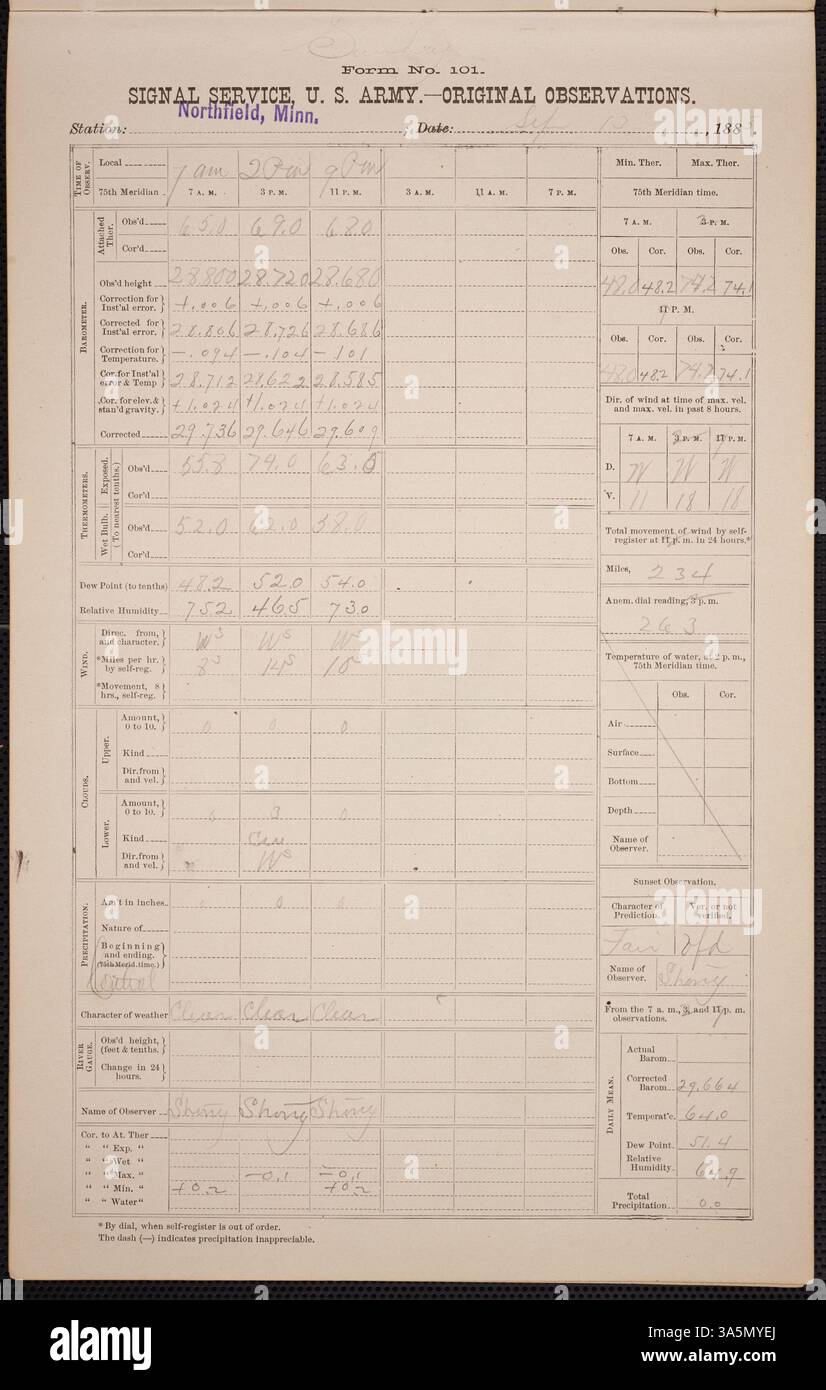 Sunday
Form No. 101.
SIGNAL SERVICE, U. S. ARMY.—ORIGINAL OBSERVATIONS.
Station: Northfield, Minn. Date: Sep 13, 1885.
TIME OF OBSERV. Local 7 am 2 P m 9 P m
75th Meridian 7 A. M. 3 P. M. 11 P. M. 3 A. M. 11 A. M. 7 P. M.
BAROMETER.
Attached Ther. Obs'd 65.0 69.0 68.0
Cor'd
Obs'd height 28.800 28.720 28.680
Correction for Inst'al error. +.006 +.006 +.006
Corrected for Inst'al error. 28.806 28.726 28.686
Correction for Temperature. -.094 -.104 -101
Cor. for Inst'al error & Temp 28.712 28.622 28.585
Cor. for elev. & stan'd gravity. +1.024 +1.024 +1.024
Corrected 29.736 29.646 29.609
THERMOMETERS.
(To nearest tenths.)
Exposed. Obs'd 55.8 74.0 63.0
Cor'd
Wet Bulb. Obs'd 52.0 62.0 58.0
Cor'd
Dew Point (to tenths) 48.2 52.0 54.0
Relative Humidity 75.2 46.5 73.0
WIND.
Direc. from, and character. W S W S W
*Miles per hr. by self-reg. 8 S 14 S 10
*Movement, 8 hrs., self-reg.
CLOUDS.
Upper. Amount, 0 to 10. 0 0 0
Kind
Dir. from and vel.
Lower. Amount, 0 to 10. 0 3 0
Kind Cu
Dir. from and vel. W S
PRECIPITATION.
Am't in inches 0 0 0
Nature of
Beginning and ending. (75th Merid. time.)
Character of weather Clear Clear Clear
RIVER GAUGE.
Obs'd height, (feet & tenths.
Change in 24 hours.
Name of Observer
Cor. to At. Ther
" " Exp. "
" " Wet "
" " Max. " -0.1 -0.1
" " Min. " +0.2 +0.2
" " Water"
* By dial, when self-register is out of order.
The dash (—) indicates precipitation inappreciable.
Min. Ther. Max. Ther.
75th Meridian time.
7 A. M. 3 P. M.
Obs. Cor. Obs. Cor.
48.0 48.2 74.2 74.1
11 P. M.
Obs. Cor. Obs. Cor.
48.0 48.2 74.2 74.1
Dir. of wind at time of max. vel. and max. vel. in past 8 hours.
7 A. M. 3 P. M. 11 P. M.
D. W W W
V. 11 18 18
Total movement of wind by self-register at 11 p. m. in 24 hours.*
Miles, 234
Anem. dial reading, 3 p. m.
263
Temperature of water, at 2 p. m., 75th Meridian time.
Obs. Cor.
Air
Surface
Bottom
Depth
Name of Observer.
Sunset Observation.
Character of Prediction. Ver. or not verified.
Fair Vfd
Name of Observer.
From the 7 a. m., 3, and 11 p. m. observations.
DAILY MEAN.
Actual Barom
Corrected Barom 29.664
Temperat'e. 64.0
Dew Point. 51.4
Relative Humidity. 64.9
Total Precipitation. 0.0
alamy
alamy
alamy
Image ID: 3A5MYEJ
www.alamy.com